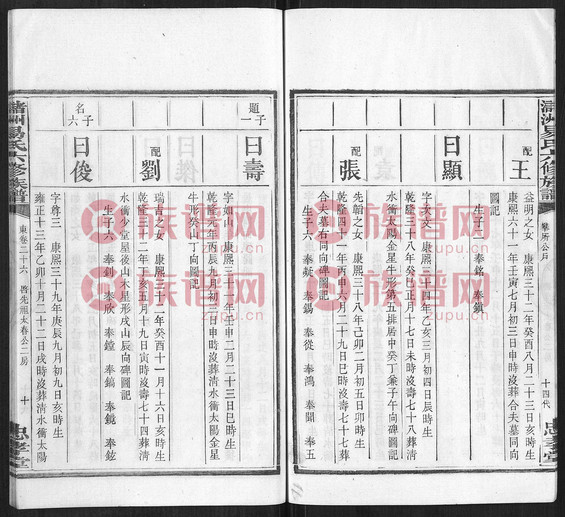 瀦洲易氏六修族譜
十四代
忠孝堂
配
王
益明之女 康熙三十二年癸酉八月二十三日亥時生
康熙六十一年壬寅七月初三日申時沒葬合夫墓同向
圖記
生子二 奉銘 奉鎖
曰顯
字文文 康熙三十四年乙亥三月初四日辰時生
乾隆三十八年癸巳正月十七日未時沒壽七十八葬清
水衝太陽金星牛形第五排居中癸丁兼子午向碑圖記
配
張
先飴之女 康熙三十八年己卯二月初八日申時生
乾隆四十一年丙申六月二十九日巳時沒壽七十七葬
合夫墓右同向碑圖記
生子六 奉錫 奉從 奉鴻 奉聞 奉五
題子一
曰壽
字如山 康熙三十一年壬申二月二十三日巳時生
乾隆元年丙辰九月初三日申時沒葬清水衝太陽金星
牛形癸山丁向圖記
配
劉
瑞吉之女 康熙三十二年癸酉十一月十六日亥時生
乾隆三十二年丁亥五月十九日寅時沒壽七十四葬清
水衝少堂屋後山木星形戌山辰向碑圖記
生子六 奉釗 奉欣 奉鏜 奉鎬 奉鏡 奉鉉
名子六
曰俊
字尊三 康熙三十九年庚辰九月初九日亥時生
雍正十三年乙卯十月二十二日戌時沒葬清水衝太陽
瀦洲易氏六修族譜
東卷二十六
啓先祖太春公二房
十
忠孝堂